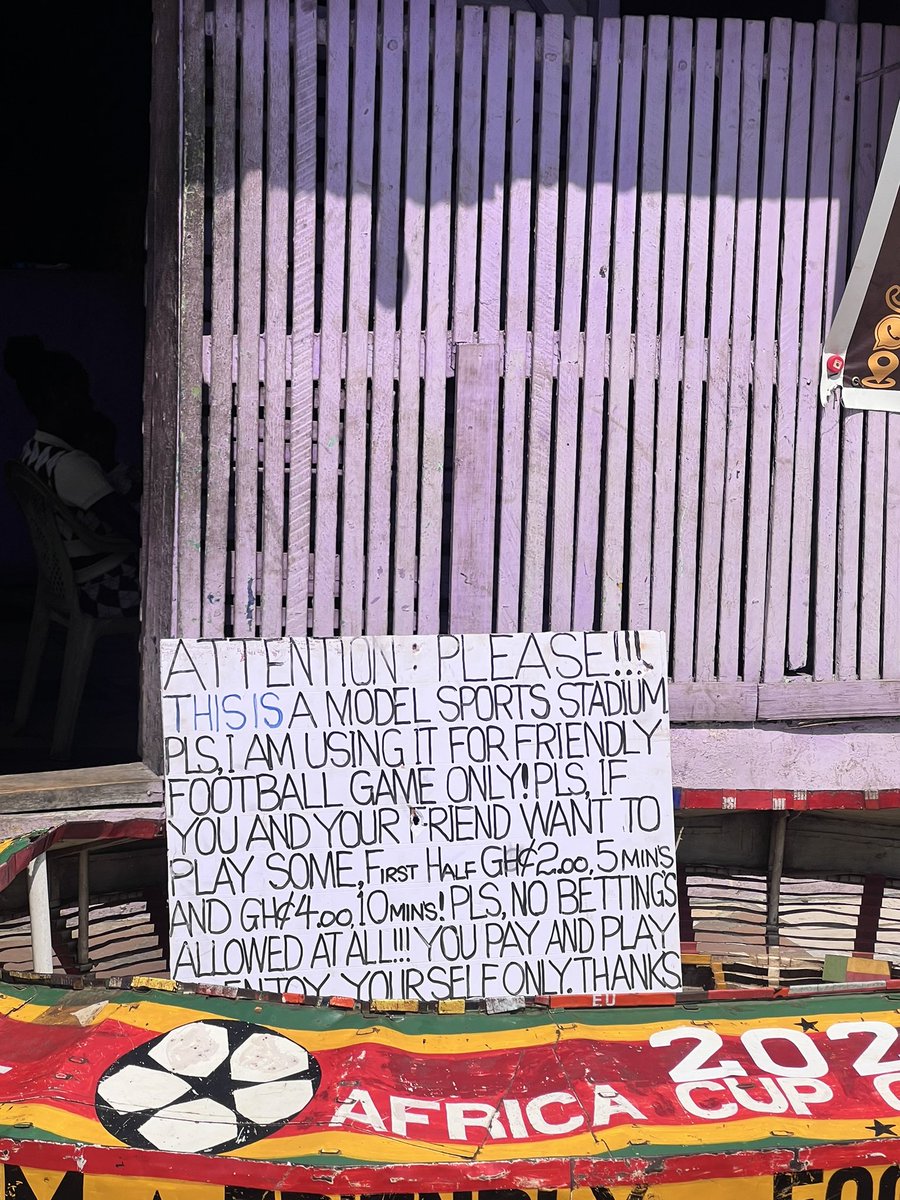 ATTENTION : PLEASE!!!
THIS IS A MODEL SPORTS STADIUM
PLS, I AM USING IT FOR FRIENDLY
FOOTBALL GAME ONLY! PLS, IF
YOU AND YOUR FRIEND WANT TO
PLAY SOME, FIRST HALF GH₵2.00, 5 MIN'S
AND GH₵4.00, 10 MIN'S! PLS, NO BETTING'S
ALLOWED AT ALL!!! YOU PAY AND PLAY
ENJOY YOURSELF ONLY. THANKS
EU
AFRICA CUP
202
FRIENDLY FOO